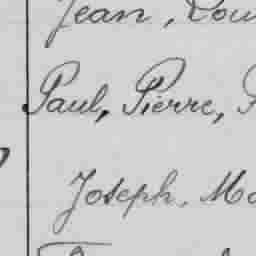 Jean, Lou
Paul, Pierre,
Joseph, Ma